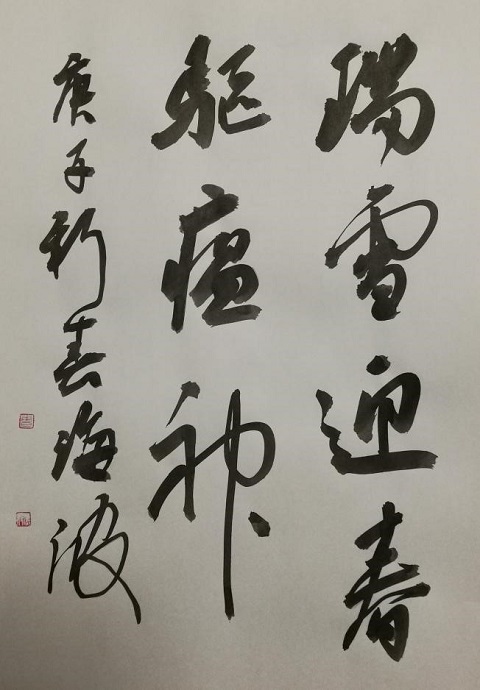 瑞雪迎春
驱瘟神
庚子新春海波